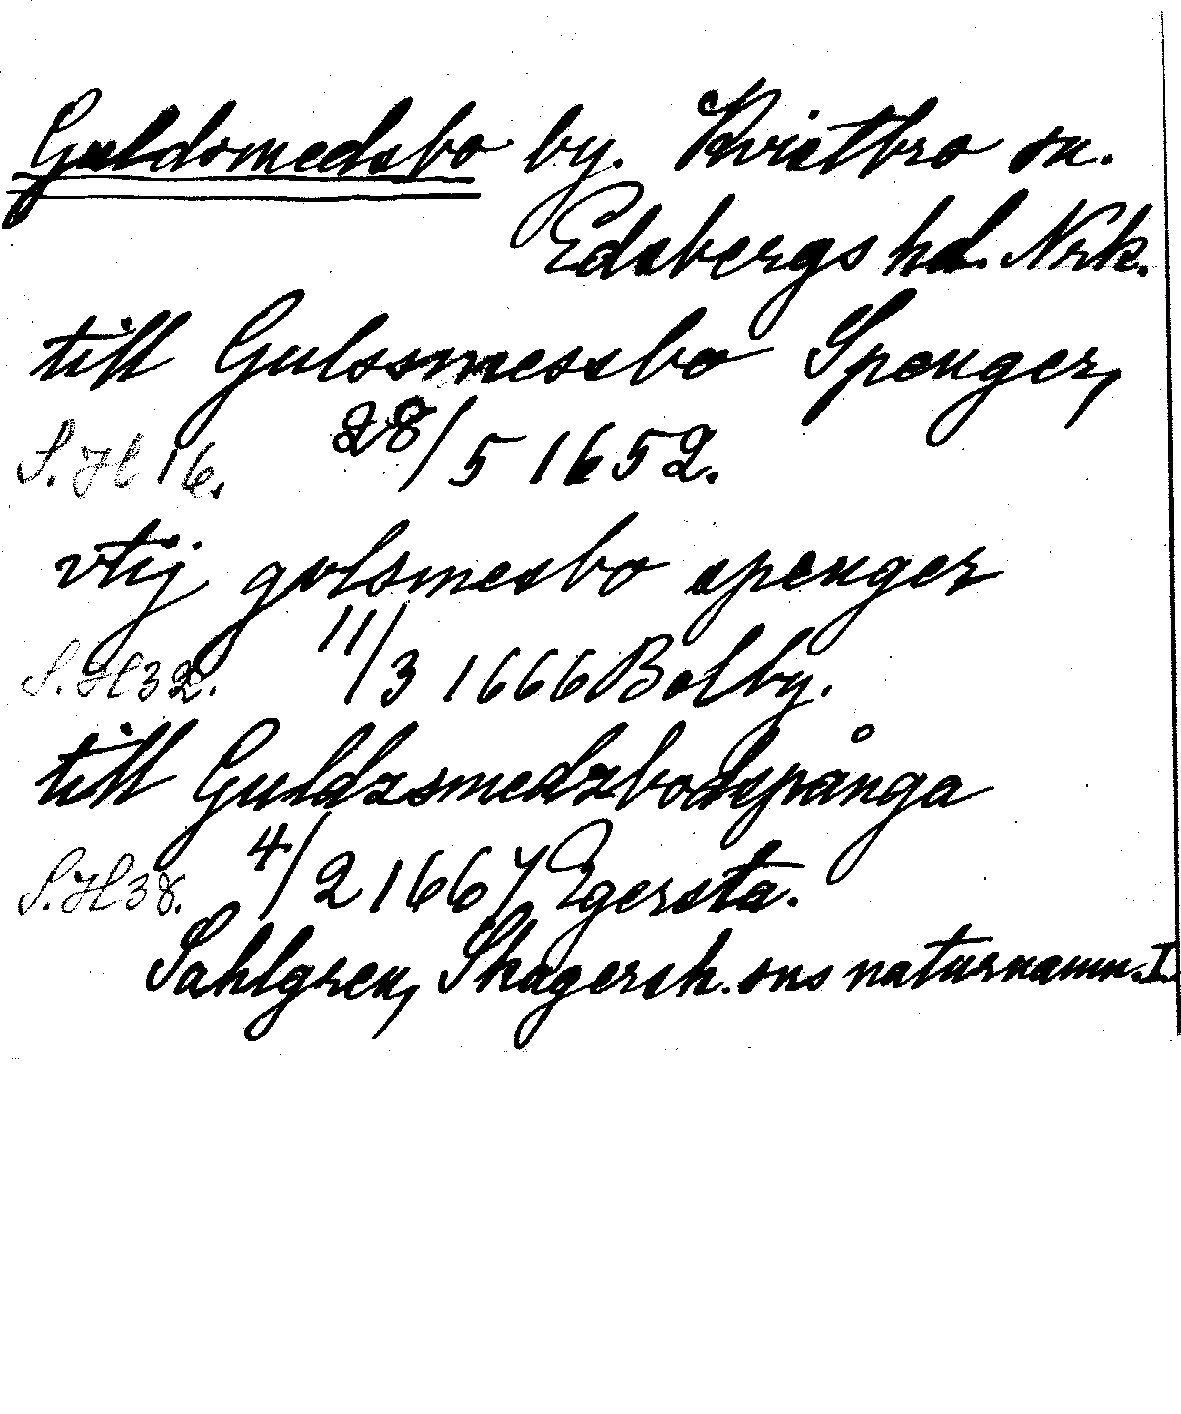 Guldsmedsbo by. Kvistbro sn.
Edsbergs hd. Nrk.
till Gulssmessbo Spenger,
S.H 16. 28/5 1652.
vtij golsmesbo spenger
S.H 32. 11/3 1666 Bolby.
till Guldzsmedzbodspånga
S.H 38. 4/2 1667 Egersta.
Sahlgren, Skagersh. sns naturnamn. I.